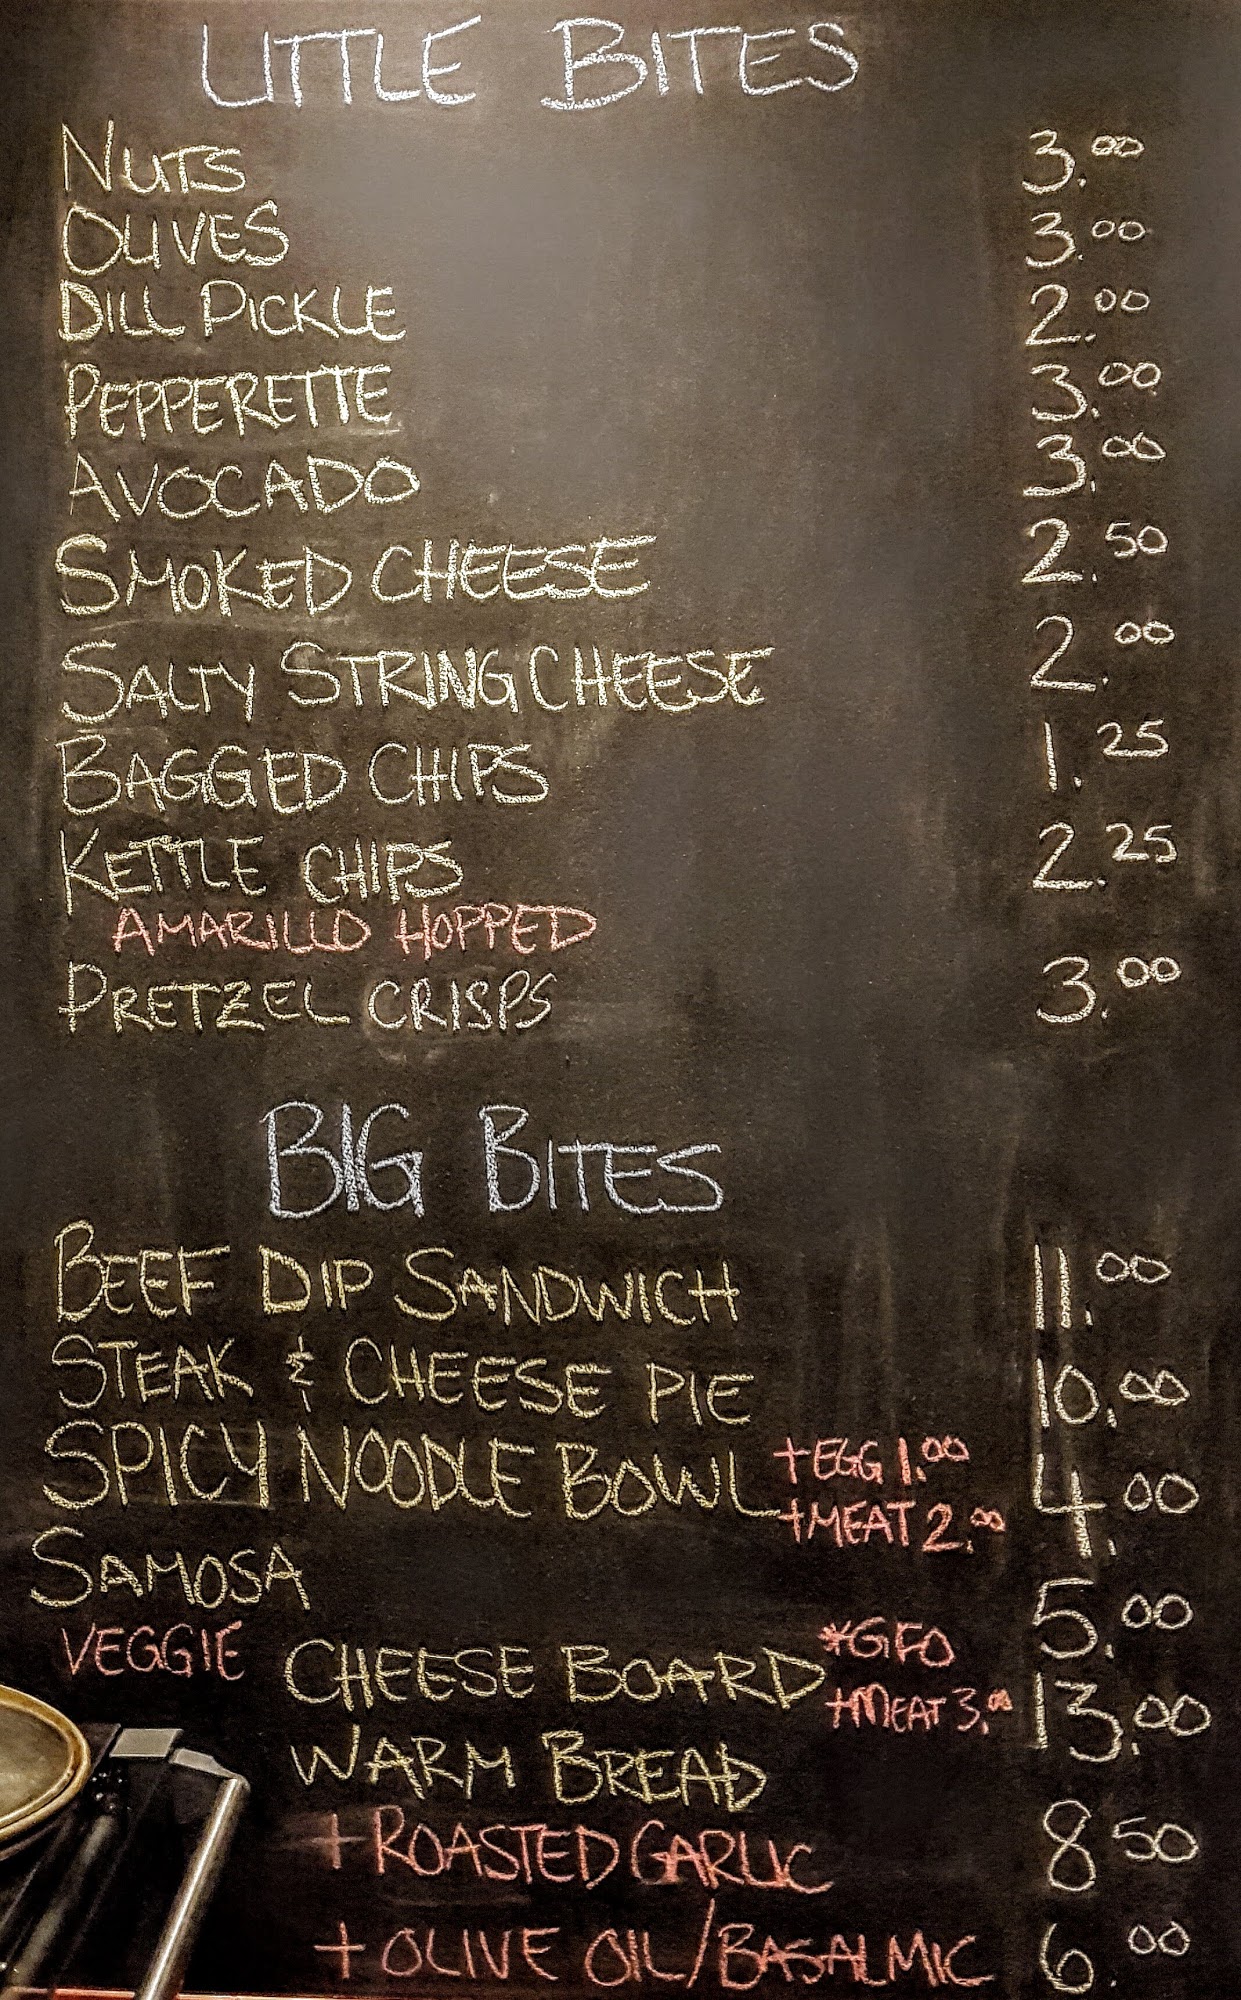 LITTLE BITES
NUTS 3.00
OLIVES 3.00
DILL PICKLE 2.00
PEPPERETTE 3.00
AVOCADO 3.00
SMOKED CHEESE 2.50
SALTY STRING CHEESE 2.00
BAGGED CHIPS 1.25
KETTLE CHIPS 2.25
AMARILLO HOPPED
PRETZEL CRISPS 3.00
BIG BITES
BEEF DIP SANDWICH 11.00
STEAK & CHEESE PIE 10.00
SPICY NOODLE BOWL +EGG 1.00 4.00
+MEAT 2.00
SAMOSA 5.00
VEGGIE
CHEESE BOARD *GFO 13.00
+MEAT 3.00
WARM BREAD
+ ROASTED GARLIC 8.50
+ OLIVE OIL/BASALMIC 6.00